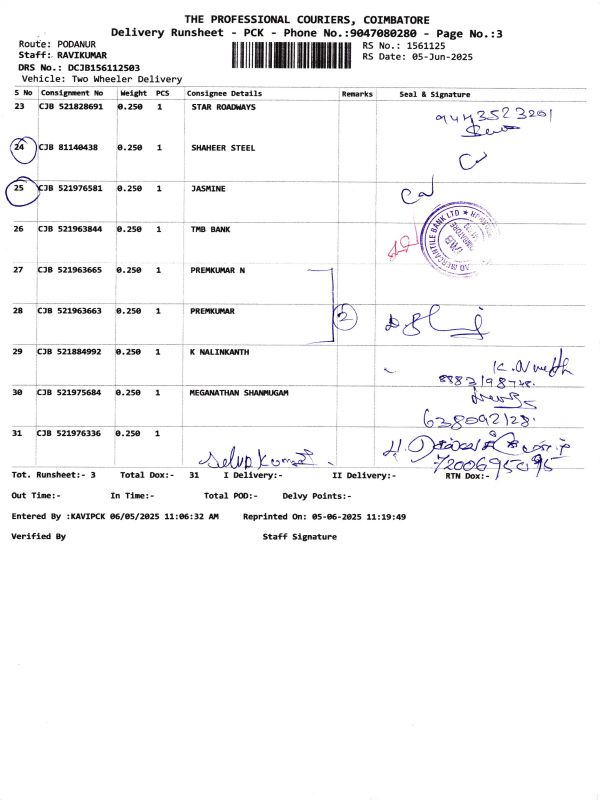 THE PROFESSIONAL COURIERS, COIMBATORE
Delivery Runsheet - PCK - Phone No.:9047080280 - Page No.:3
Route: PODANUR
RS No.: 1561125
Staff: RAVIKUMAR
RS Date: 05-Jun-2025
DRS No.: DCJB156112503
Vehicle: Two Wheeler Delivery
S No Consignment No Weight PCS Consignee Details Remarks Seal & Signature
23 CJB 521828691 0.250 1 STAR ROADWAYS 9443523201
24 CJB 81140438 0.250 1 SHAHEER STEEL
25 CJB 521976581 0.250 1 JASMINE
26 CJB 521963844 0.250 1 TMB BANK
27 CJB 521963665 0.250 1 PREMKUMAR N
28 CJB 521963663 0.250 1 PREMKUMAR 2
29 CJB 521884992 0.250 1 K NALINKANTH
30 CJB 521975684 0.250 1 MEGANATHAN SHANMUGAM
31 CJB 521976336 0.250 1
Tot. Runsheet:- 3 Total Dox:- 31 I Delivery:- II Delivery:- RTN Dox:-
Out Time:- In Time:- Total POD:- Delvy Points:-
Entered By :KAVIPCK 06/05/2025 11:06:32 AM Reprinted On: 05-06-2025 11:19:49
Verified By Staff Signature